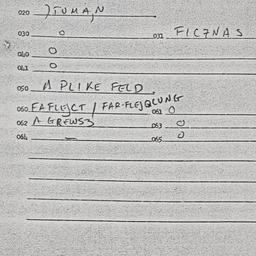 020 JTUMAN
030 0 031 FICZNAS
040 0
041 0
050 A PLIKE FELD
060 FAFLEJCT / FAR-FLEJQCUNG
061 0
062 A GREWS3 063 0
064 - 065 0